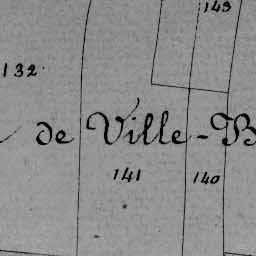 143
132.
de Ville-B
141
140